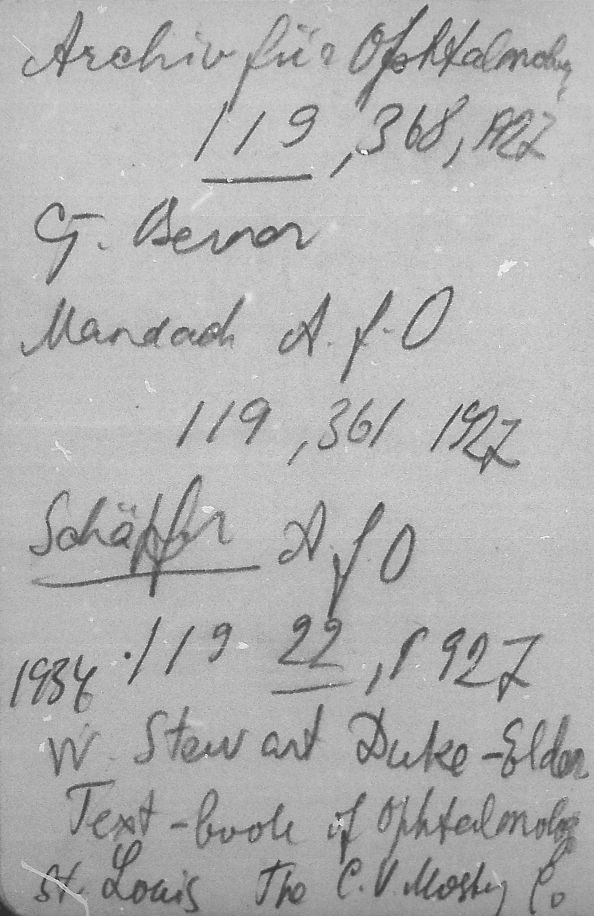 Archiv für Ophtalmolog
119, 368, 1927
G. Berner
Mandach A. f. O
119, 361 1927
Schäpfer A. f O
119 22, 1927
1934
W. Stewart Duke-Elder
Text-book of Ophtalmolog
St. Louis The C. V. Mosby Co